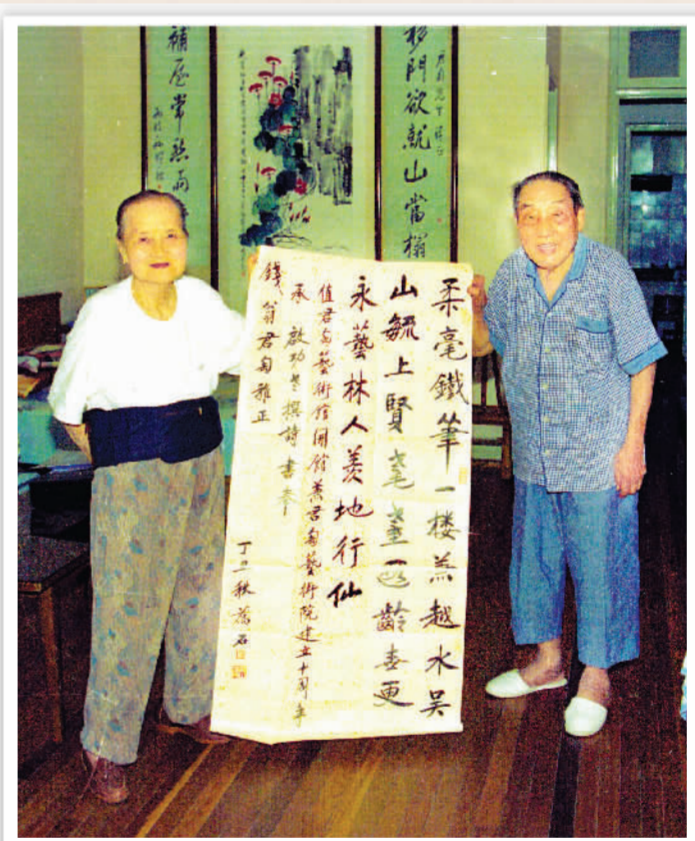 移門欲就山當榻
補屋常愁雨
柔毫鐵筆一楼兼越水吳
山毓上賢耄耋遐齡壽更
永藝林人羨地行仙
值君匋藝術館開館兼君匋藝術院建立十周年
承 啟功老撰詩書奉
錢翁君匋雅正
丁丑秋 石